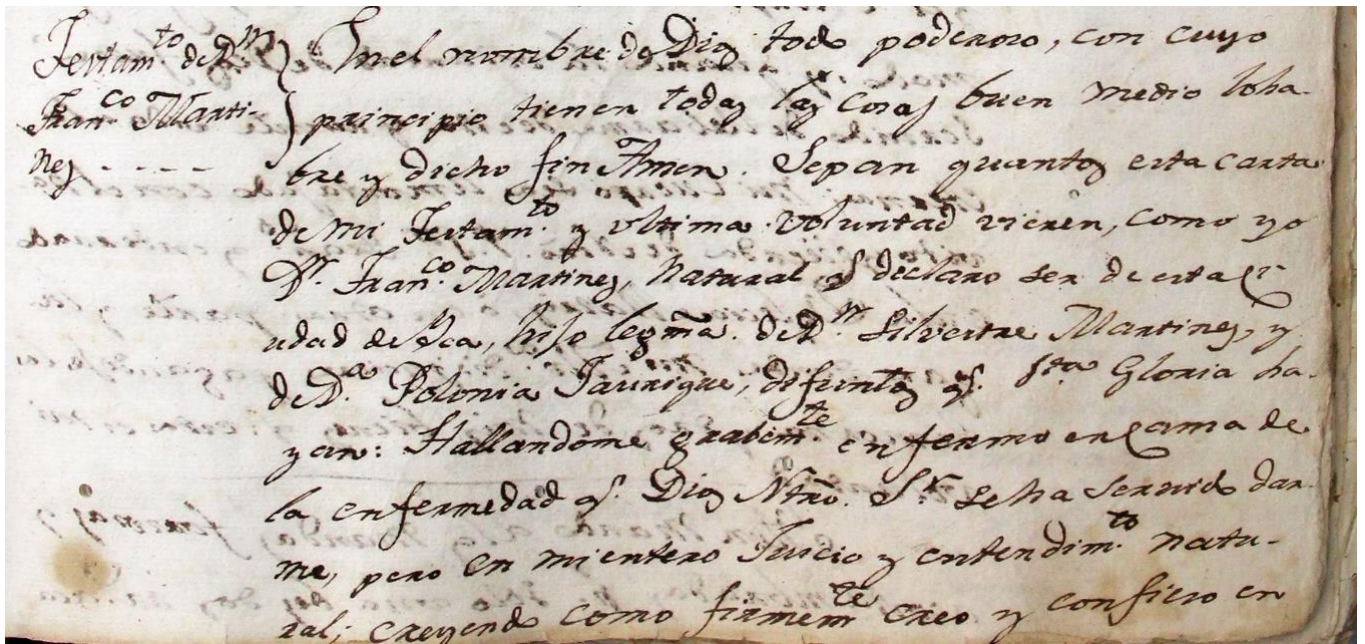 Testam.to de D.n
Fran.co Marti-
nez - - - -
En el nombre de Dios todo poderoso, con cuyo
principio tienen todas las cosas buen medio loha-
ble y dicho fin Amen. Sepan quantos esta carta
de mi Testam.to y ultima voluntad vieren, como yo
D.n Fran.co Martinez, natural q.e declaro ser de esta Ci-
udad de Yca, hijo legmo. de D.n Silvestre Martinez, y
de D.a Polonia Jaurigue, difuntos q.e s.ta Gloria ha-
yan: Hallandome grabem.te enfermo en cama de
la enfermedad q.e Dios Ntro. S.r se ha servido dar-
me, pero en mi entero Juicio y entendim.to natu-
ral; creyendo como firmem.te creo y confieso en